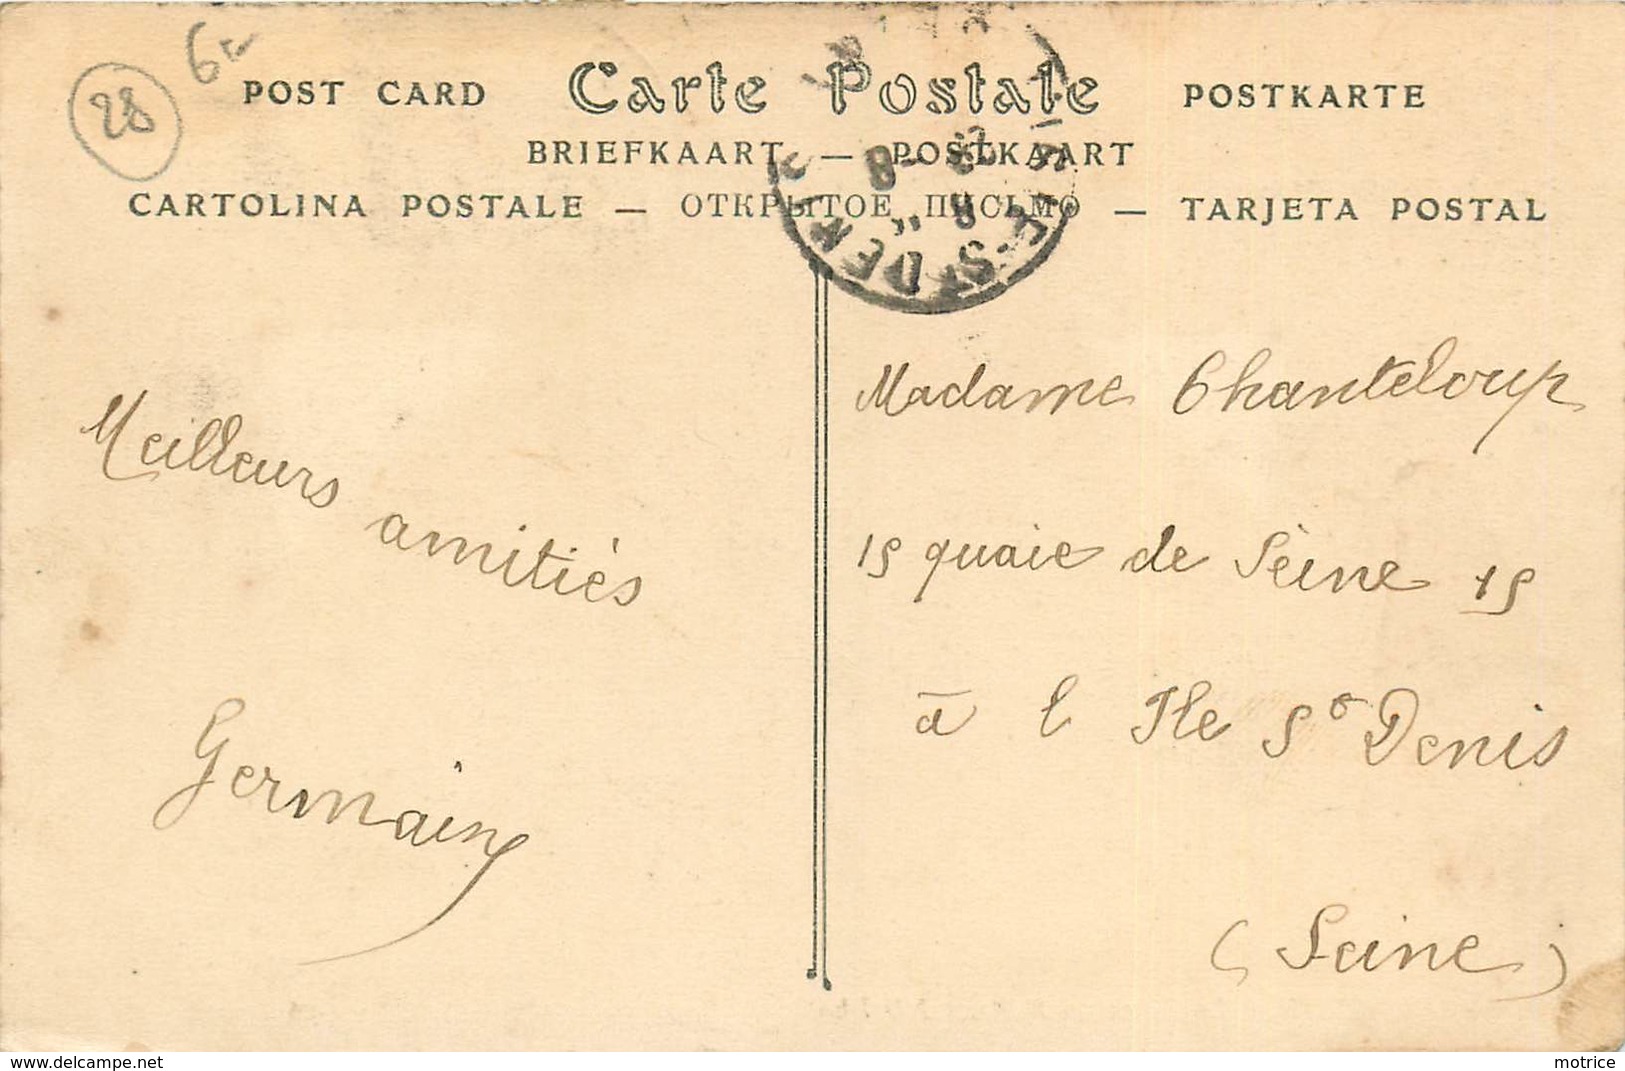 28
6
POST CARD Carte Postale POSTKARTE
BRIEFKAART — POSTKAART
CARTOLINA POSTALE — ОТКРЫТОЕ ПИСЬМО — TARJETA POSTAL
ST DENIS
Meilleurs
amitiés
Germain
Madame Chanteloup
15 quaie de Seine 15
à l Ile St Denis
(Seine)
www.delcampe.net
motrice